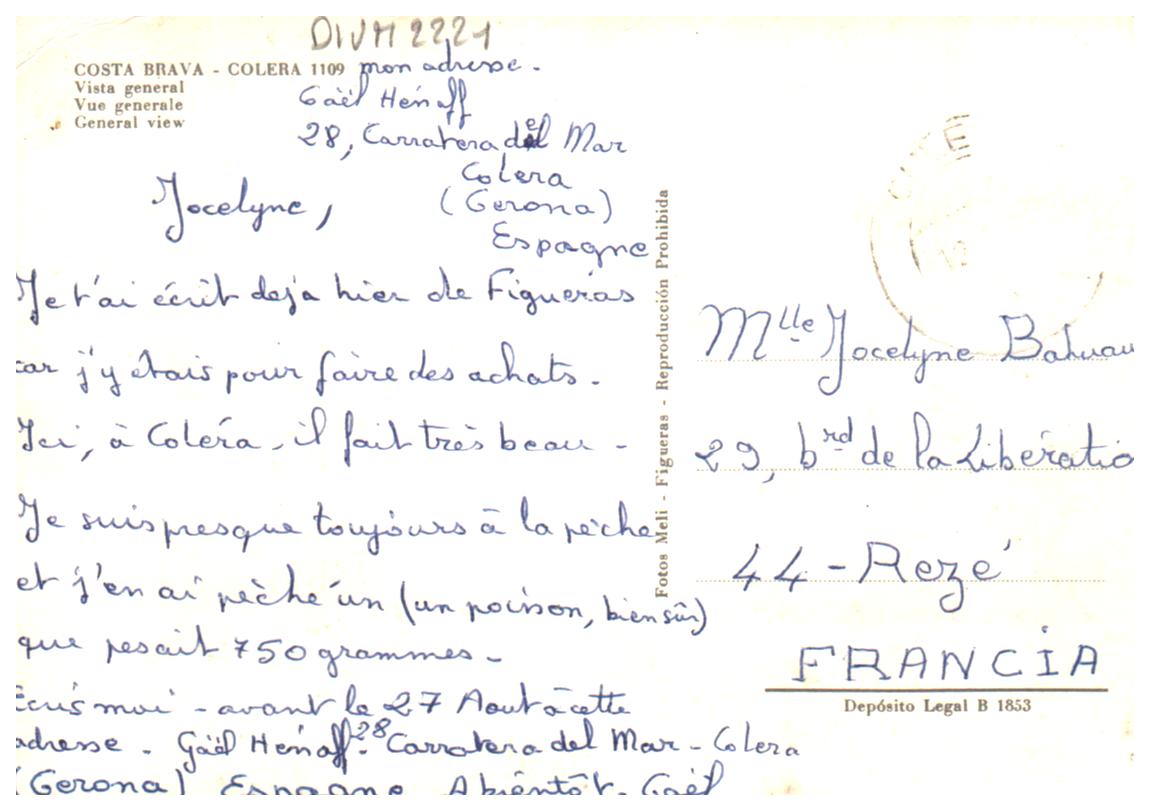 DIVM 2221
COSTA BRAVA - COLERA 1109
Vista general
Vue generale
General view
mon adresse -
Gaël Henaff
28, Carratera del Mar
Colera
(Gerona)
Espagne
Jocelyne,
Je t'ai écrit deja hier de Figueras
car j'y étais pour faire des achats.
Ici, à Coléra, il fait très beau -
Je suis presque toujours à la pèche
et j'en ai pèché un (un poisson, bien sûr)
que pesait 750 grammes -
Ecris moi - avant le 27 Aout à cette
adresse - Gaël Henaff - 28 Carratera del Mar - Colera
(Gerona) Espagne A bientôt - Gaël
Fotos Meli - Figueras - Reproducción Prohibida
Mlle Jocelyne
29, brd de la Libératio
44 - Rezé
FRANCIA
Depósito Legal B 1853